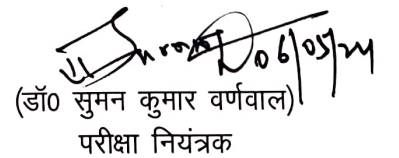 06/05/24
(डॉ0 सुमन कुमार वर्णवाल)
परीक्षा नियंत्रक